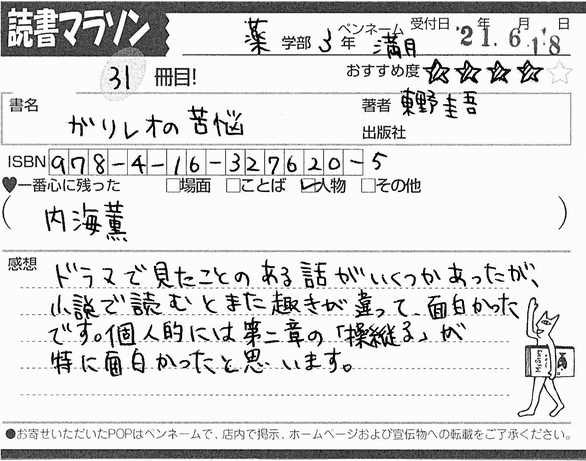 読書マラソン
薬 学部 3年 ペンネーム 満月 受付日 '21年 6月 18日
31 冊目! おすすめ度 ★★★★☆
書名 ガリレオの苦悩
著者 東野圭吾
出版社
ISBN 978-4-16-327620-5
♥一番心に残った □場面 □ことば ☑人物 □その他
(内海薫)
感想 ドラマで見たことのある話がいくつかあったが、
小説で読むとまた趣きが違って、面白かった
です。個人的には第二章の「操縦る」が
特に面白かったと思います。
●お寄せいただいたPOPはペンネームで、店内で掲示、ホームページおよび宣伝物への転載をご了承ください。